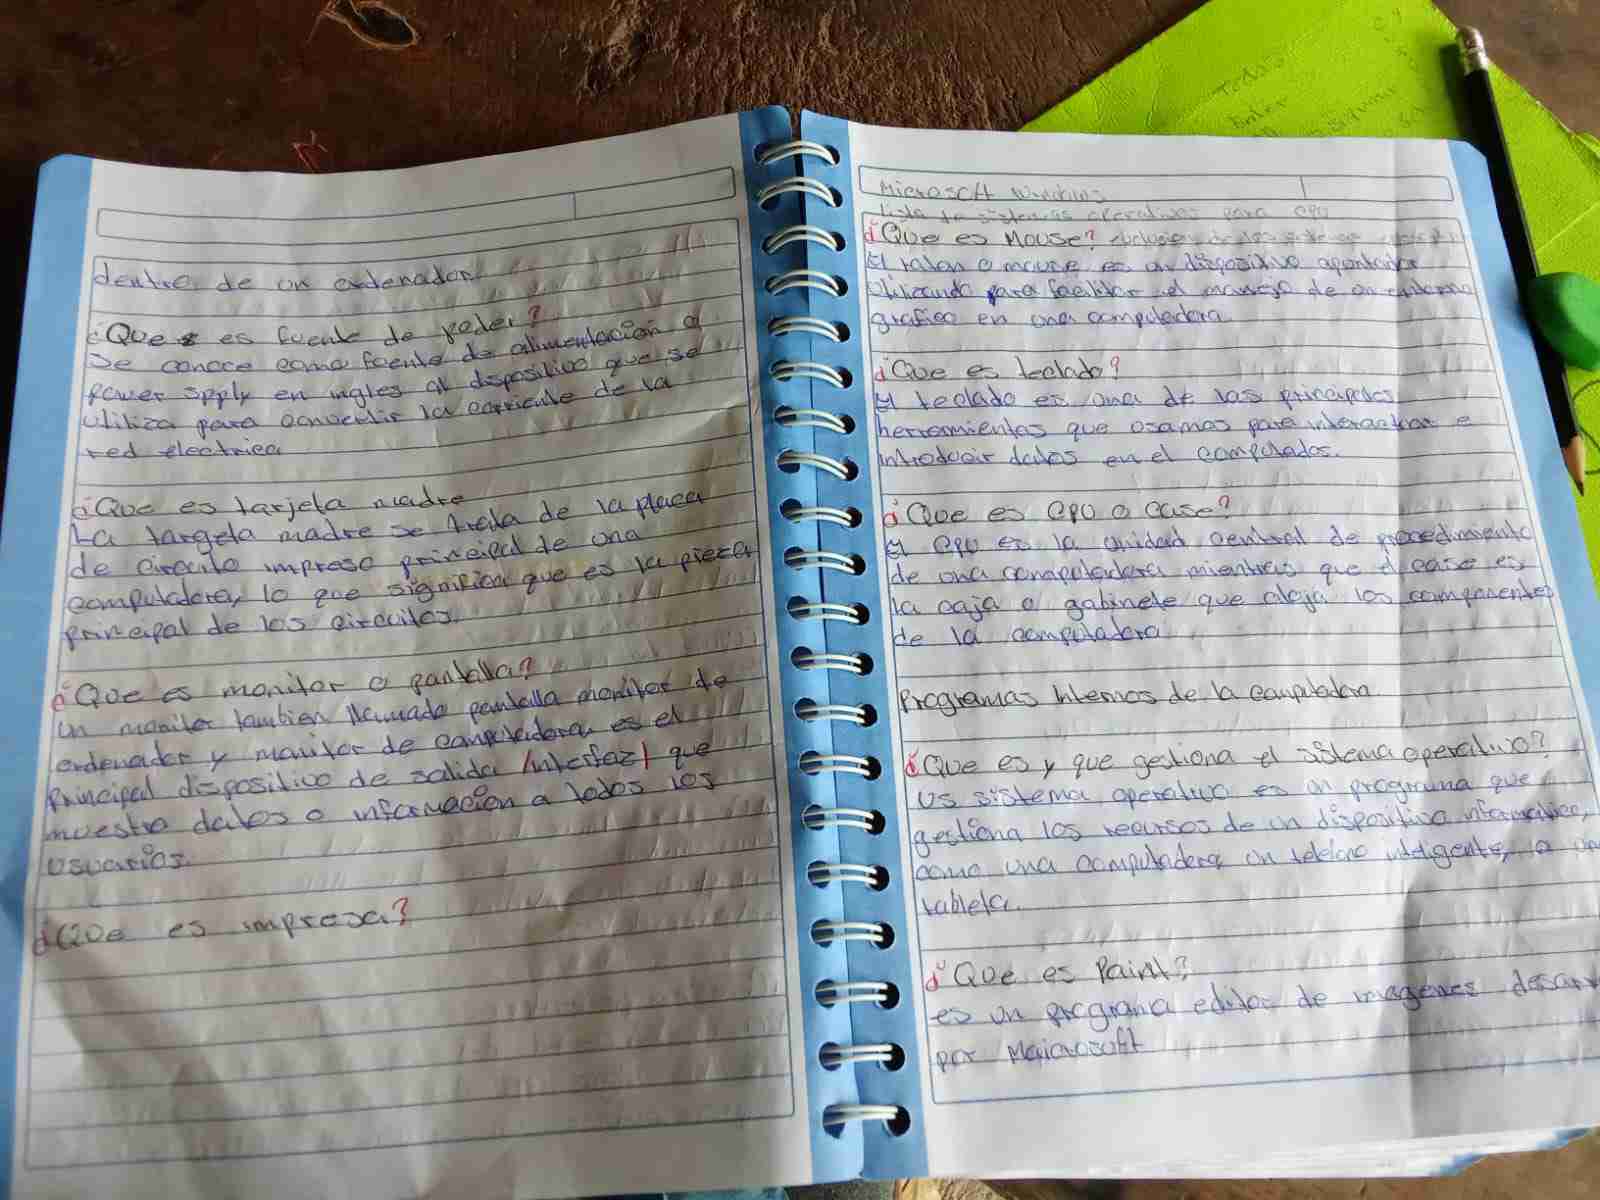 dentro de un ordenador.
¿Que es fuente de poder?
Se conoce como fuente de alimentación o
power spply en ingles al dispositivo que se
utiliza para convertir la corriente de la
red electrica
¿Que es tarjeta madre
La targeta madre se trata de la placa
de circuito impreso principal de una
computadora, lo que significa que es la pieza
principal de los circuitos.
¿Que es monitor o pantalla?
un monitor tambien llamado pantalla monitor de
ordenador y monitor de computadora es el
principal dispositivo de salida (interfaz) que
muestra datos o informacion a todos los
usuarios.
¿Que es impresa?
Microsoft Windows
lista de sistemas operativos para cpu
¿Que es Mouse?
El raton o mouse es un dispositivo apuntador
utilizando para facilitar el manejo de un entorno
grafico en una computadora.
¿Que es teclado?
El teclado es una de las principales
herramientas que usamos para interactuar e
introducir datos en el computados.
¿Que es cpu o case?
El cpu es la unidad central de procedimiento
de una computadora mientras que el case es
la caja o gabinete que aloja los componentes
de la computadora
Programas Internos de la computadora
¿Que es y que gestiona el sistema operativo?
us sistema operativo es un programa que
gestiona los recursos de un dispositivo informatico,
como una computadora, un telefono inteligente, o un
tableta.
¿Que es Paint?
es un programa editor de imagenes desarr
por Maicrosoft
Todo
Enter